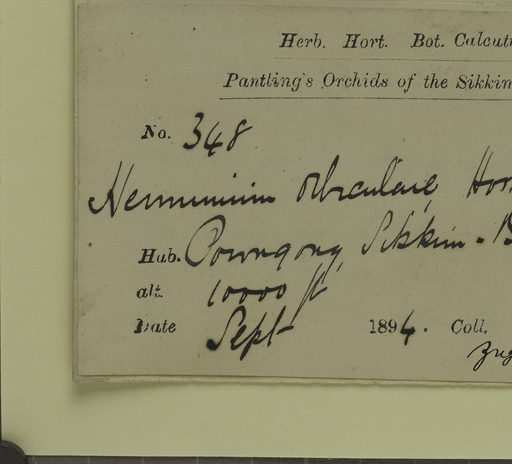 Herb. Hort. Bot. Calcut
Pantling's Orchids of the Sikkim
No. 348
Herminium orbiculare, Hor
Hab. Sikkim.
alt. 10000 ft
Date Sept 1894. Coll.